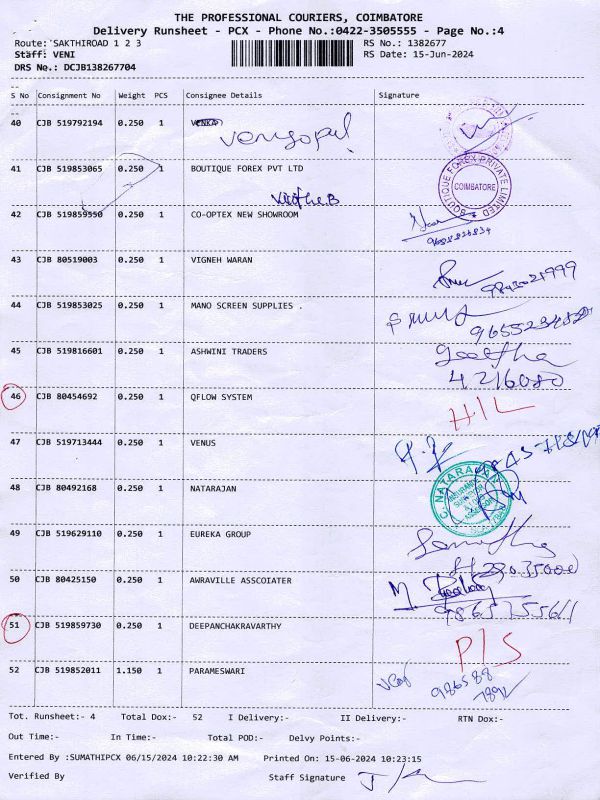 THE PROFESSIONAL COURIERS, COIMBATORE
Delivery Runsheet - PCX - Phone No.:0422-3505555 - Page No.:4
Route: SAKTHIROAD 1 2 3 RS No.: 1382677
Staff: VENI RS Date: 15-Jun-2024
DRS No.: DCJB138267704
S No Consignment No Weight PCS Consignee Details Signature
40 CJB 519792194 0.250 1
Venugopal
41 CJB 519853065 0.250 1 BOUTIQUE FOREX PVT LTD
BOUTIQUE FOREX PRIVATE LIMITED
COIMBATORE
42 CJB 519859550 0.250 1 CO-OPTEX NEW SHOWROOM
43 CJB 80519003 0.250 1 VIGNEH WARAN
44 CJB 519853025 0.250 1 MANO SCREEN SUPPLIES .
45 CJB 519816601 0.250 1 ASHWINI TRADERS
Geetha
4216080
46 CJB 80454692 0.250 1 QFLOW SYSTEM
HIL
47 CJB 519713444 0.250 1 VENUS
48 CJB 80492168 0.250 1 NATARAJAN
C. NATARAJAN
INSURANCE
SURVEYOR
49 CJB 519629110 0.250 1 EUREKA GROUP
50 CJB 80425150 0.250 1 AWRAVILLE ASSCOIATER
51 CJB 519859730 0.250 1 DEEPANCHAKRAVARTHY
PIS
52 CJB 519852011 1.150 1 PARAMESWARI
986588
7892
Tot. Runsheet:- 4 Total Dox:- 52 I Delivery:- II Delivery:- RTN Dox:-
Out Time:- In Time:- Total POD:- Delvy Points:-
Entered By :SUMATHIPCX 06/15/2024 10:22:30 AM Printed On: 15-06-2024 10:23:15
Verified By Staff Signature